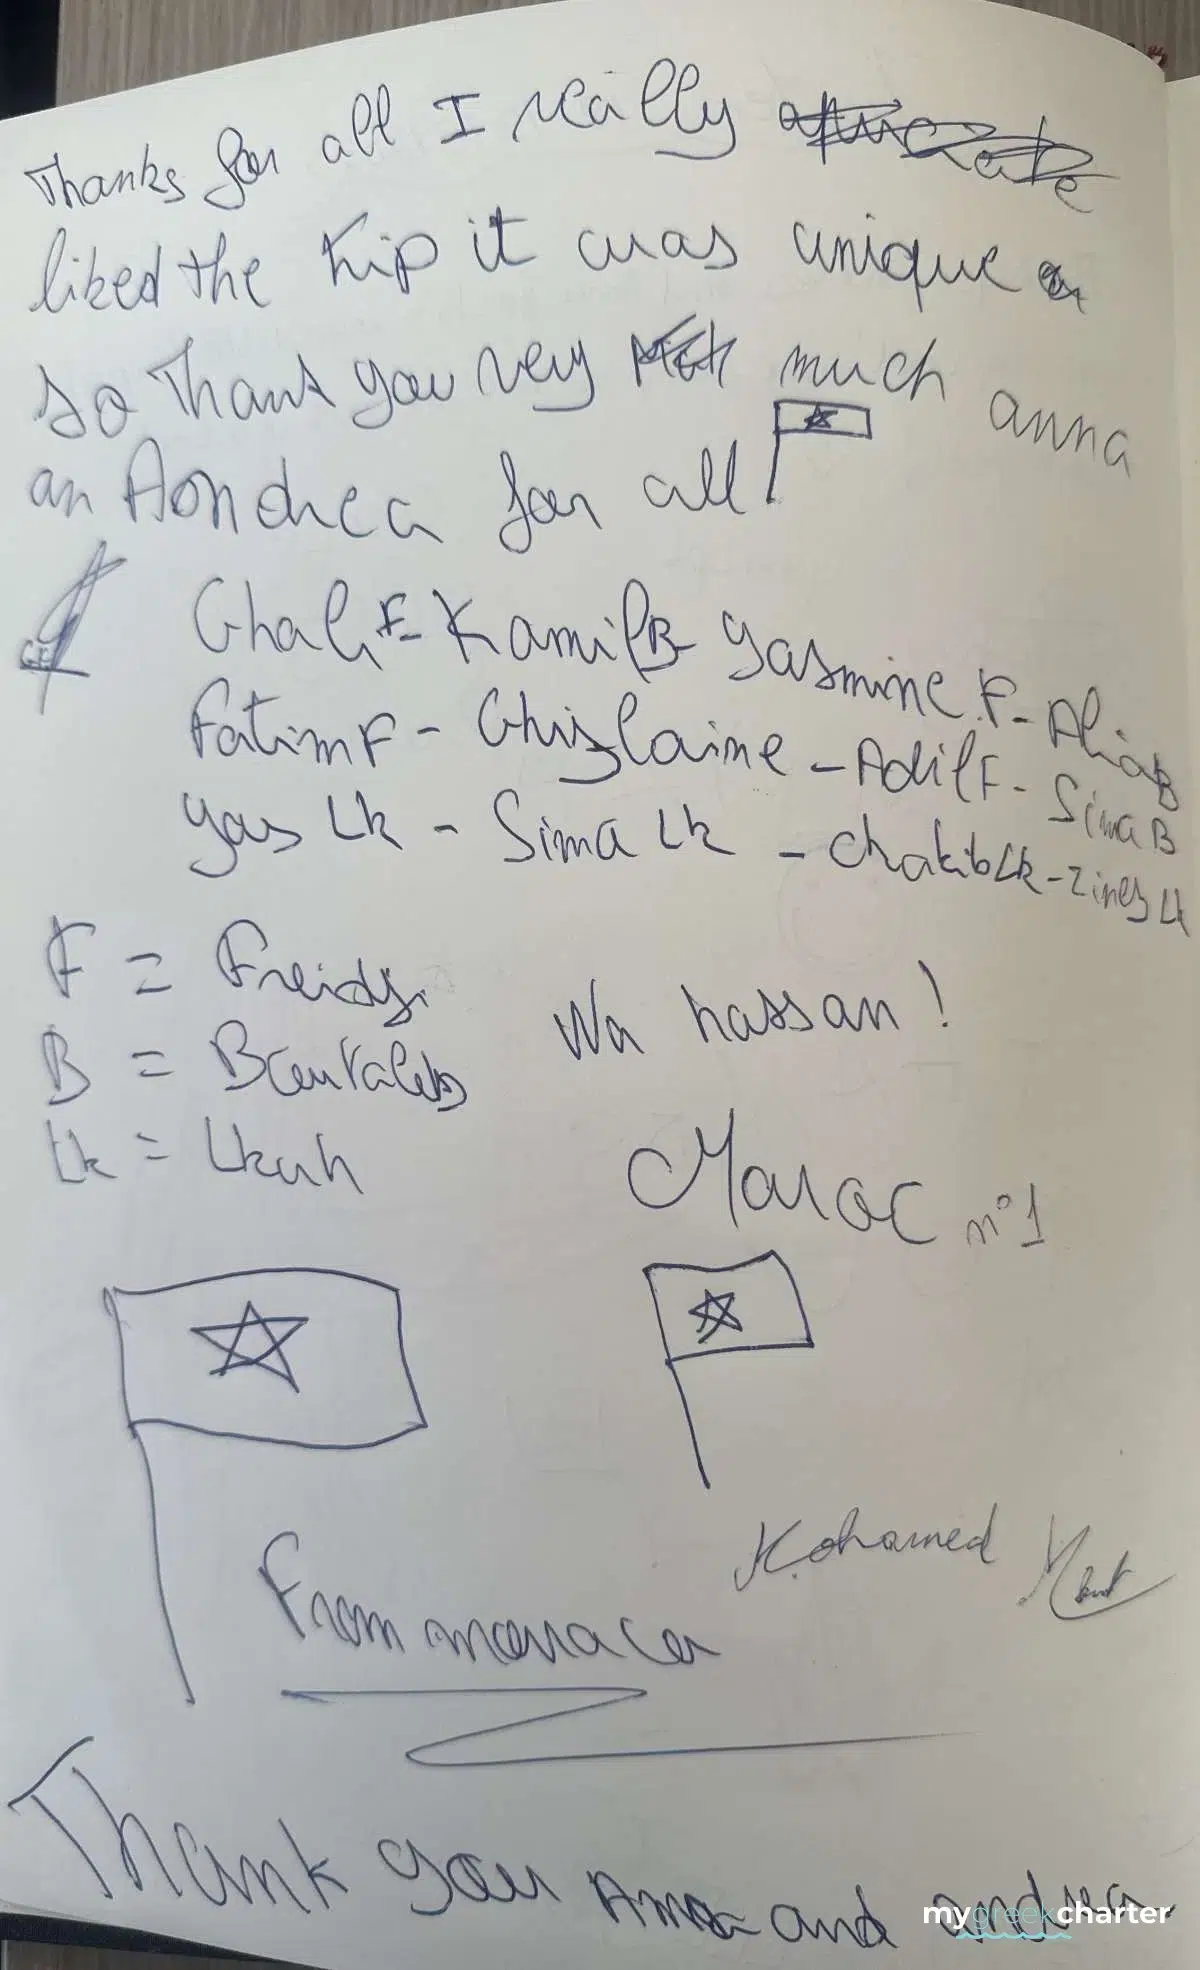 Thanks for all I really
liked the trip it was unique
so Thank you very much anna
an Aondrea for all
Ghali F- Kamil B- Yasmine F- Alia B
Fatim F - Ghizlaine - Adil F- Sima B
Yas Lk - Sima Lk - Chakib Lk - Zines Lk
F =
B = Boutaleb
Lk =
Wa hassan !
Maroc n°1
From
Mohamed
Thank you Anna and andrea
mygreekcharter